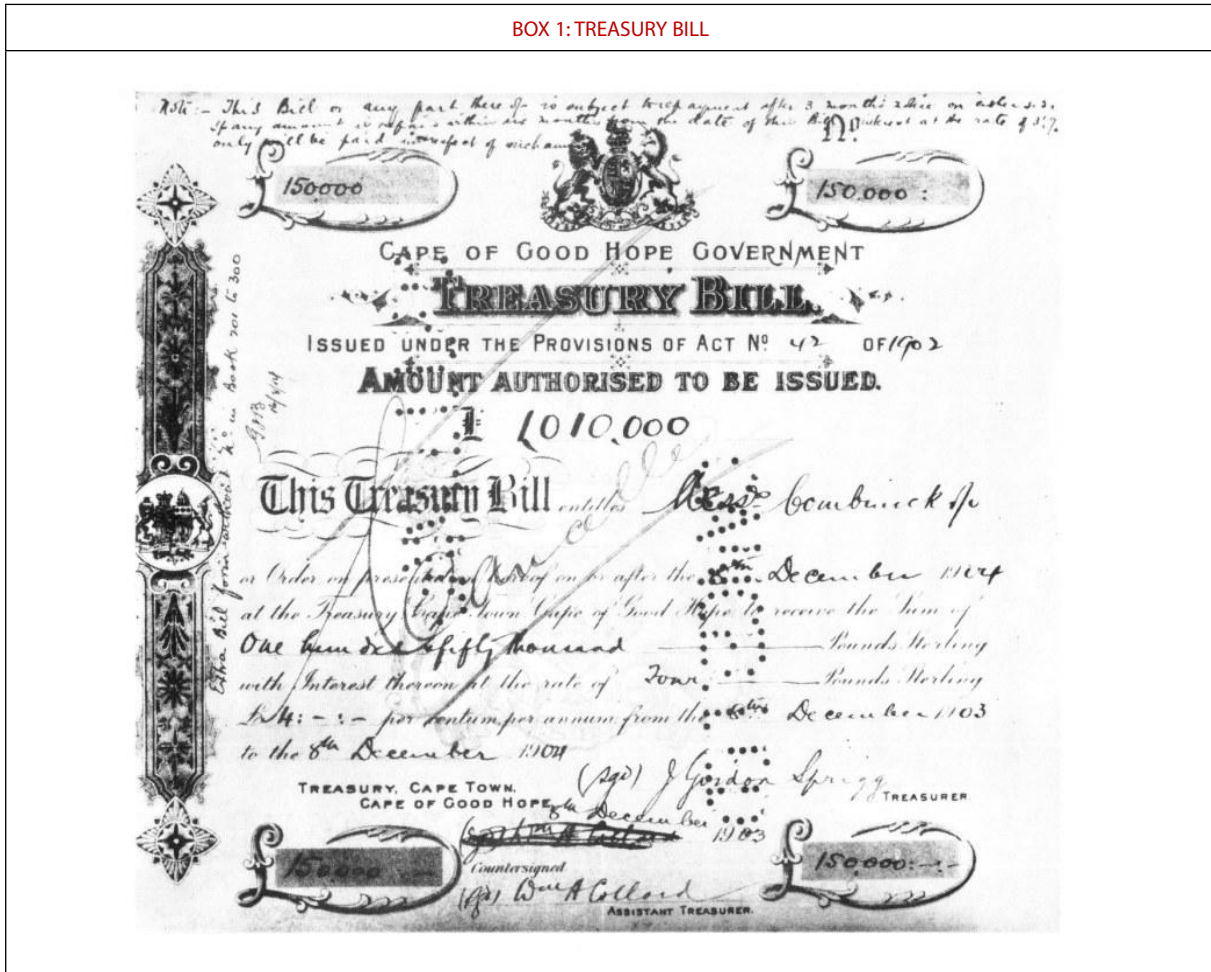 BOX 1: TREASURY BILL
Note:- This Bill or any part thereof is subject to repayment after 3 months
If any amount is within six months from the date of this Bill interest at the rate of
only will be paid in respect of
£ 150000
£ 150,000:
CAPE OF GOOD HOPE GOVERNMENT
TREASURY BILL.
ISSUED UNDER THE PROVISIONS OF ACT Nº 42 OF 1902
AMOUNT AUTHORISED TO BE ISSUED.
£ 1,010,000
This Treasury Bill entitles Messrs
or Order on presentation thereof on or after the 8th December 1904
at the Treasury Cape Town Cape of Good Hope to receive the Sum of
One hundred & fifty thousand Pounds Sterling
with Interest thereon at the rate of Four Pounds Sterling
£ 4:-:- per centum per annum from the 8th December 1903
to the 8th December 1904
TREASURY, CAPE TOWN,
CAPE OF GOOD HOPE,
8th December 1903
(sgd) J Gordon Sprigg
TREASURER
£ 150,000
£ 150,000:-:-
Countersigned
(sgd) Wm A Collard
ASSISTANT TREASURER.
Extra Bill form without No in book 201 to 300
Cancelled